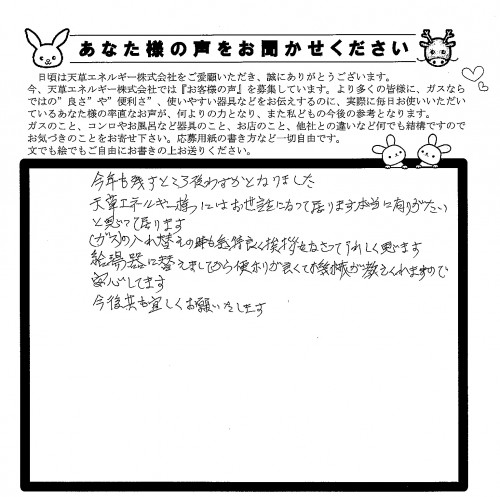 あなた様の声をお聞かせください
日頃は天草エネルギー株式会社をご愛顧いただき、誠にありがとうございます。
今、天草エネルギー株式会社では『お客様の声』を募集しています。より多くの皆様に、ガスなら
ではの”良さ”や”便利さ”、使いやすい器具などをお伝えするのに、実際に毎日お使いいただい
ているあなた様の率直なお声が、何よりの力となり、また私どもの今後の参考となります。
ガスのこと、コンロやお風呂など器具のこと、お店のこと、他社との違いなど何でも結構ですので
お気づきのことをお寄せ下さい。応募用紙の書き方など一切自由です。
文でも絵でもご自由にお書きの上お送りください。
今年も残すところ後わずかとなりました
天草エネルギー様にはお世話になって居ります本当に有りがたい
と思って居ります
(ガス)の入れ替えの時も気持良く挨拶をなさってうれしく思います
給湯器に替えましてから便利が良くて機械が教えてくれますので
安心してます
今後共宜しくお願いいたします